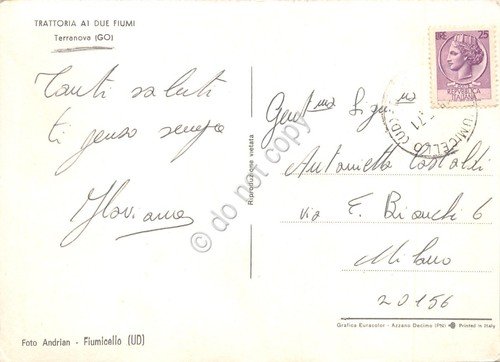 TRATTORIA AI DUE FIUMI
Terranova (GO)
Tanti saluti
ti penso sempre
Flaviana
Riproduzione vietata
LIRE 25
REPUBBLICA
ITALIANA
UMICELLO (UD)
71
Gent.ma Sig.na
Antonietta Castaldi
via F. Bianchi 6
Milano
20156
Grafica Euracolor - Azzano Decimo (PN) Printed in Italy
Foto Andrian - Fiumicello (UD)
do not copy